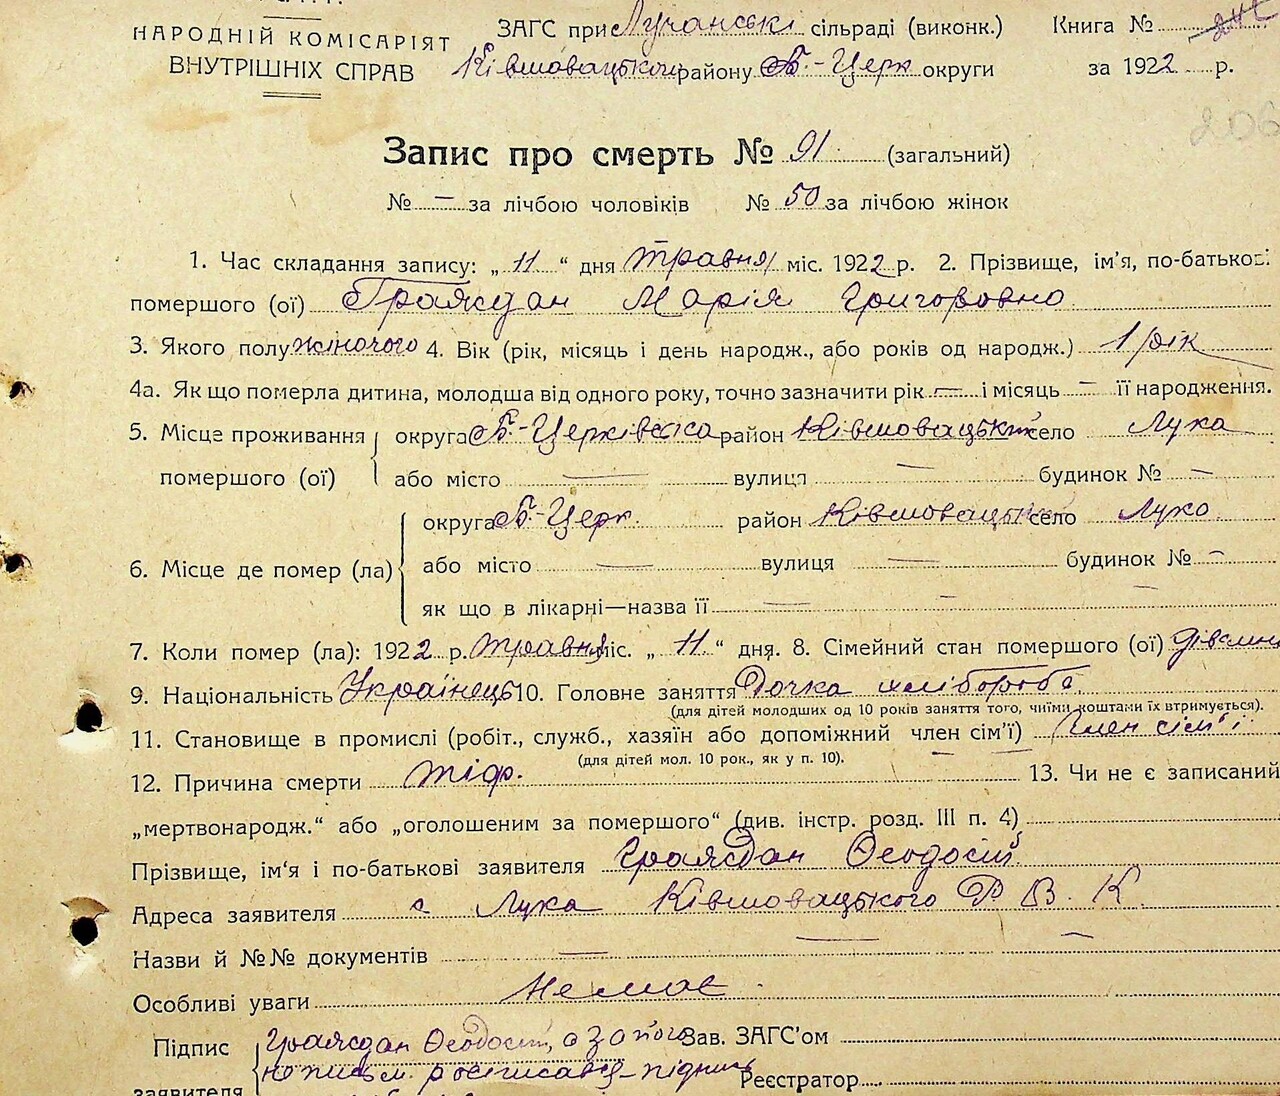 НАРОДНІЙ КОМІСАРІЯТ
ВНУТРІШНІХ СПРАВ
ЗАГС при Лучанські сільраді (виконк.) Книга №
Ківшовацького району Б.-Церк округи за 1922 р.
206
Запис про смерть № 91 (загальний)
№ — за лічбою чоловіків № 50 за лічбою жінок
1. Час складання запису: „ 11 “ дня травня міс. 1922 р. 2. Прізвище, ім'я, по-батькові
помершого (ої) Граждан Марія Григоровно
3. Якого полу жіночого 4. Вік (рік, місяць і день народж., або років од народж.) 1 рік
4а. Як що померла дитина, молодша від одного року, точно зазначити рік — і місяць — її народження.
5. Місце проживання округа Б.-Церківська район Ківшовацький село Лука
помершого (ої) або місто — вулиця — будинок № —
округа Б.-Церк. район Ківшовацький село Луко
6. Місце де помер (ла) або місто — вулиця — будинок № —
як що в лікарні—назва її — — —
7. Коли помер (ла): 1922 р. травня міс. „ 11. “ дня. 8. Сімейний стан помершого (ої)
9. Національність Українець 10. Головне заняття Дочка хлібороба
(для дітей молодших од 10 років заняття того, чиїми коштами їх втримується).
11. Становище в промислі (робіт., служб., хазяїн або допоміжний член сім'ї) Член сім'ї
(для дітей мол. 10 рок., як у п. 10).
12. Причина смерти тіф. 13. Чи не є записаний
„мертвонародж.“ або „оголошеним за помершого“ (див. інстр. розд. III п. 4)
Прізвище, ім'я і по-батькові заявителя Граждан Феодосій
Адреса заявителя с Лука Ківшовацького Р В. К.
Назви й №№ документів — — —
Особливі уваги Немає
Підпис Граждан Феодосій, а за його Зав. ЗАГС'ом
заявителя неписьм. Реєстратор